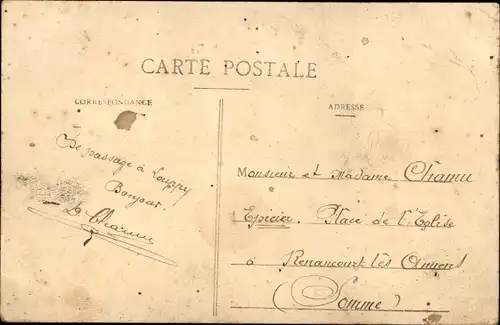 CARTE POSTALE
CORRESPONDANCE
ADRESSE
De passage à
Bonjour.
Monsieur et Madame
Epicier. Place de l'Eglise
à Renancourt-lès Amiens
(Somme)